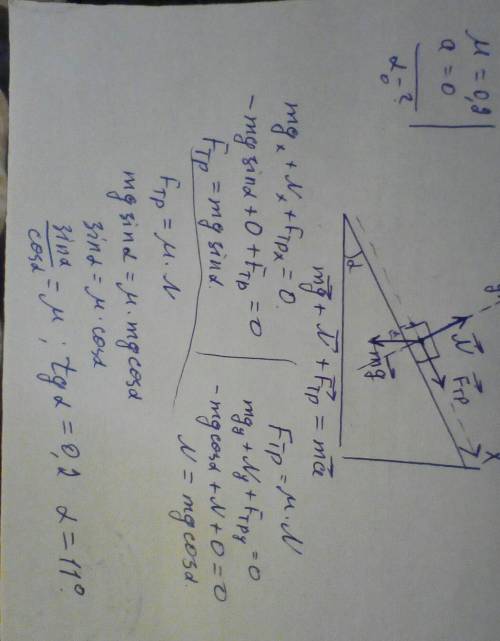 μ = 0,2
a = 0
α₀ - ?
y
x
N⃗
F⃗тр
mg⃗
α
α
mg⃗ + N⃗ + F⃗тр = ma⃗
mgₓ + Nₓ + Fтрₓ = 0
-mg sinα + 0 + Fтр = 0
Fтр = mg sinα
Fтр = μ·N
mgy + Ny + Fтрy = 0
-mg cosα + N + 0 = 0
N = mg cosα
Fтр = μ·N
mg sinα = μ·mg cosα
sinα = μ·cosα
sinα/cosα = μ ; tgα = 0,2 α = 11°.